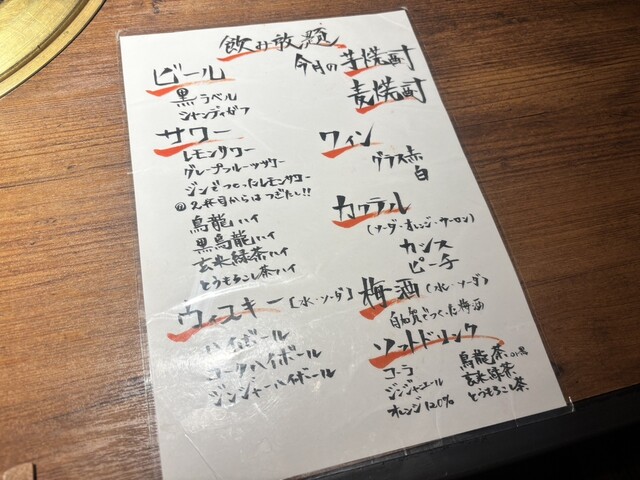 飲み放題
ビール
黒ラベル
シャンディガフ
サワー
レモンサワー
グレープフルーツサワー
ジンでつくったレモンサワー
2杯目からはつぎたし!!
烏龍ハイ
黒烏龍ハイ
玄米緑茶ハイ
とうもろこし茶ハイ
ウィスキー [水・ソーダ]
ハイボール
コークハイボール
ジンジャーハイボール
今月の芋焼酎
麦焼酎
ワイン
グラス赤
白
カクテル
(ソーダ・オレンジ・ウーロン)
カシス
ピーチ
梅酒 (水・ソーダ)
自家製でつくった梅酒
ソフトドリンク
コーラ
ジンジャエール
オレンジ120%
烏龍茶 or黒
玄米緑茶
とうもろこし茶